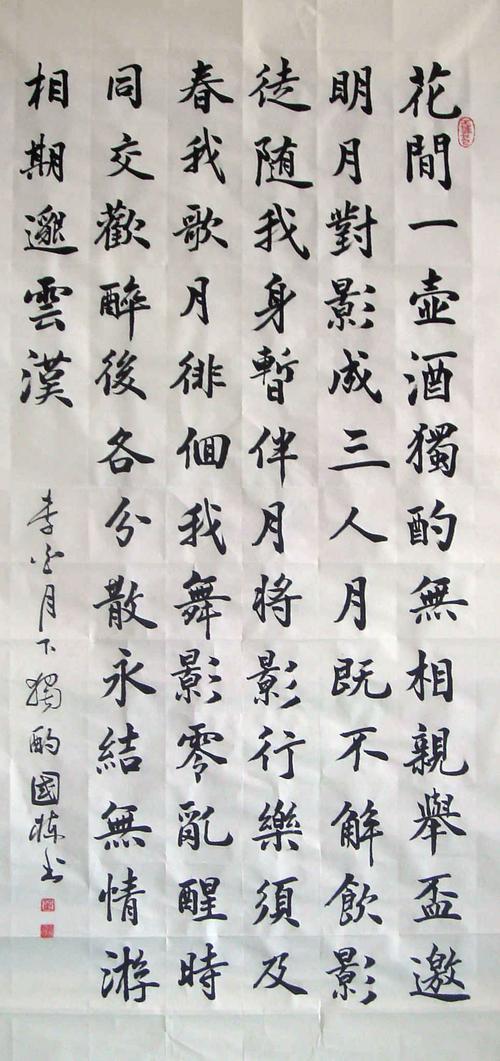 花間一壺酒獨酌無相親舉盃邀
明月對影成三人月既不解飲影
徒随我身暫伴月将影行樂須及
春我歌月徘徊我舞影零亂醒時
同交歡醉後各分散永結無情游
相期邈雲漢
李白月下獨酌國棟书